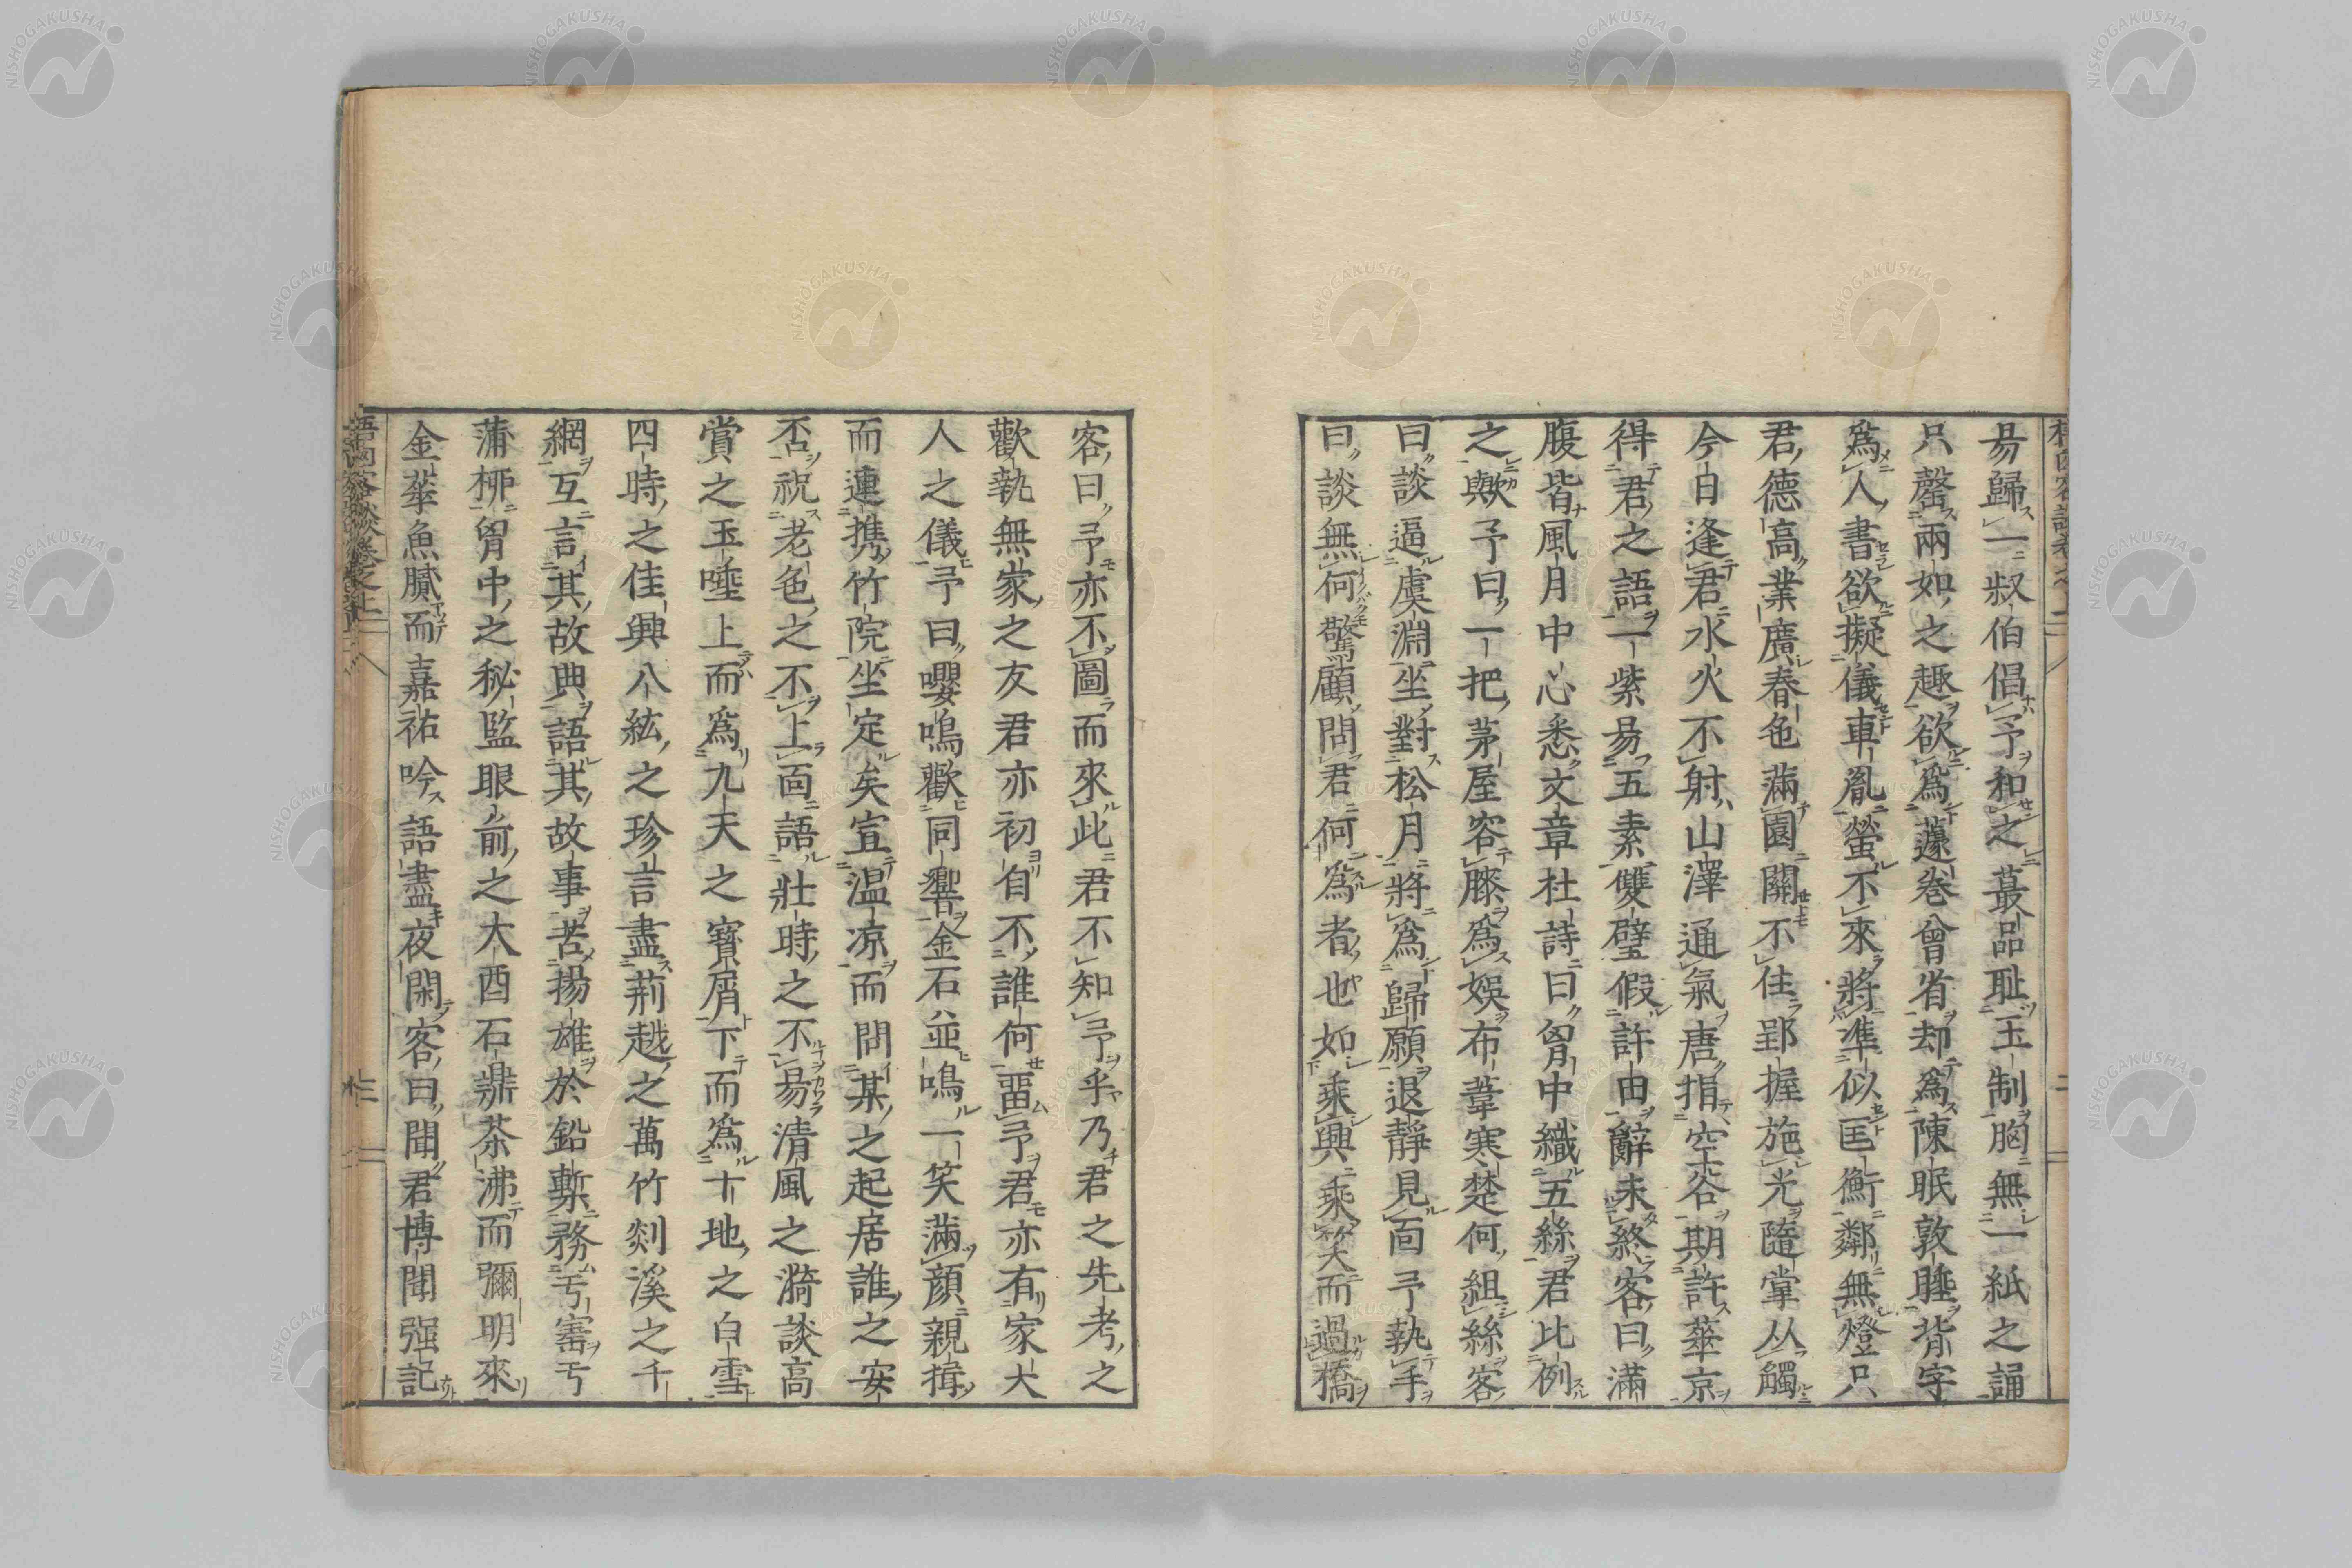 易歸一叔伯倡予和之最品耻玉制胸無一紙之誦
只罄兩如之趣欲爲蘧卷曾省却爲陳眠敦睡背字
爲人書欲擬儀車胤螢不來將準似匡衡鄰無燈只
君德高業廣春色滿園關不佳郢握施光隨掌丛觸
今日逢君水火不射山澤通氣唐指空谷期許華京
得君之語一紫易五素雙璧假許由辭未終客曰滿
腹皆風月中心悉文章杜詩曰胷中織五絲君比例
之歟予曰一把茅屋容膝爲娯布葦寒楚何組絲客
曰談逼虞淵坐對松月將爲歸願退靜見面予執手
曰談無何驚顧問君何爲者也如乘興乘笑而過橋
客曰予亦不圖而來此君不知予乎乃君之先考之
歡執無家之友君亦初自不誰何畱予君亦有家犬
人之儀予曰嚶鳴歡同響金石並鳴一笑滿顔親揖
而連携竹院坐定矣宣温凉而問某之起居誰之安
否祝老色之不上面語壯時之不易清風之漪談高
賞之玉唾上而爲九天之寳屑下而爲十地之白雪
四時之佳興八紘之珍言盡荊越之萬竹剡溪之千
網互言其故典語其故事苦揚雄於鉛槧務丐審丐
蒲栁胷中之秘監眼前之大酉石鼎茶沸而彌明來
金華魚膩而嘉祐吟語盡夜閑客曰聞君博聞强記